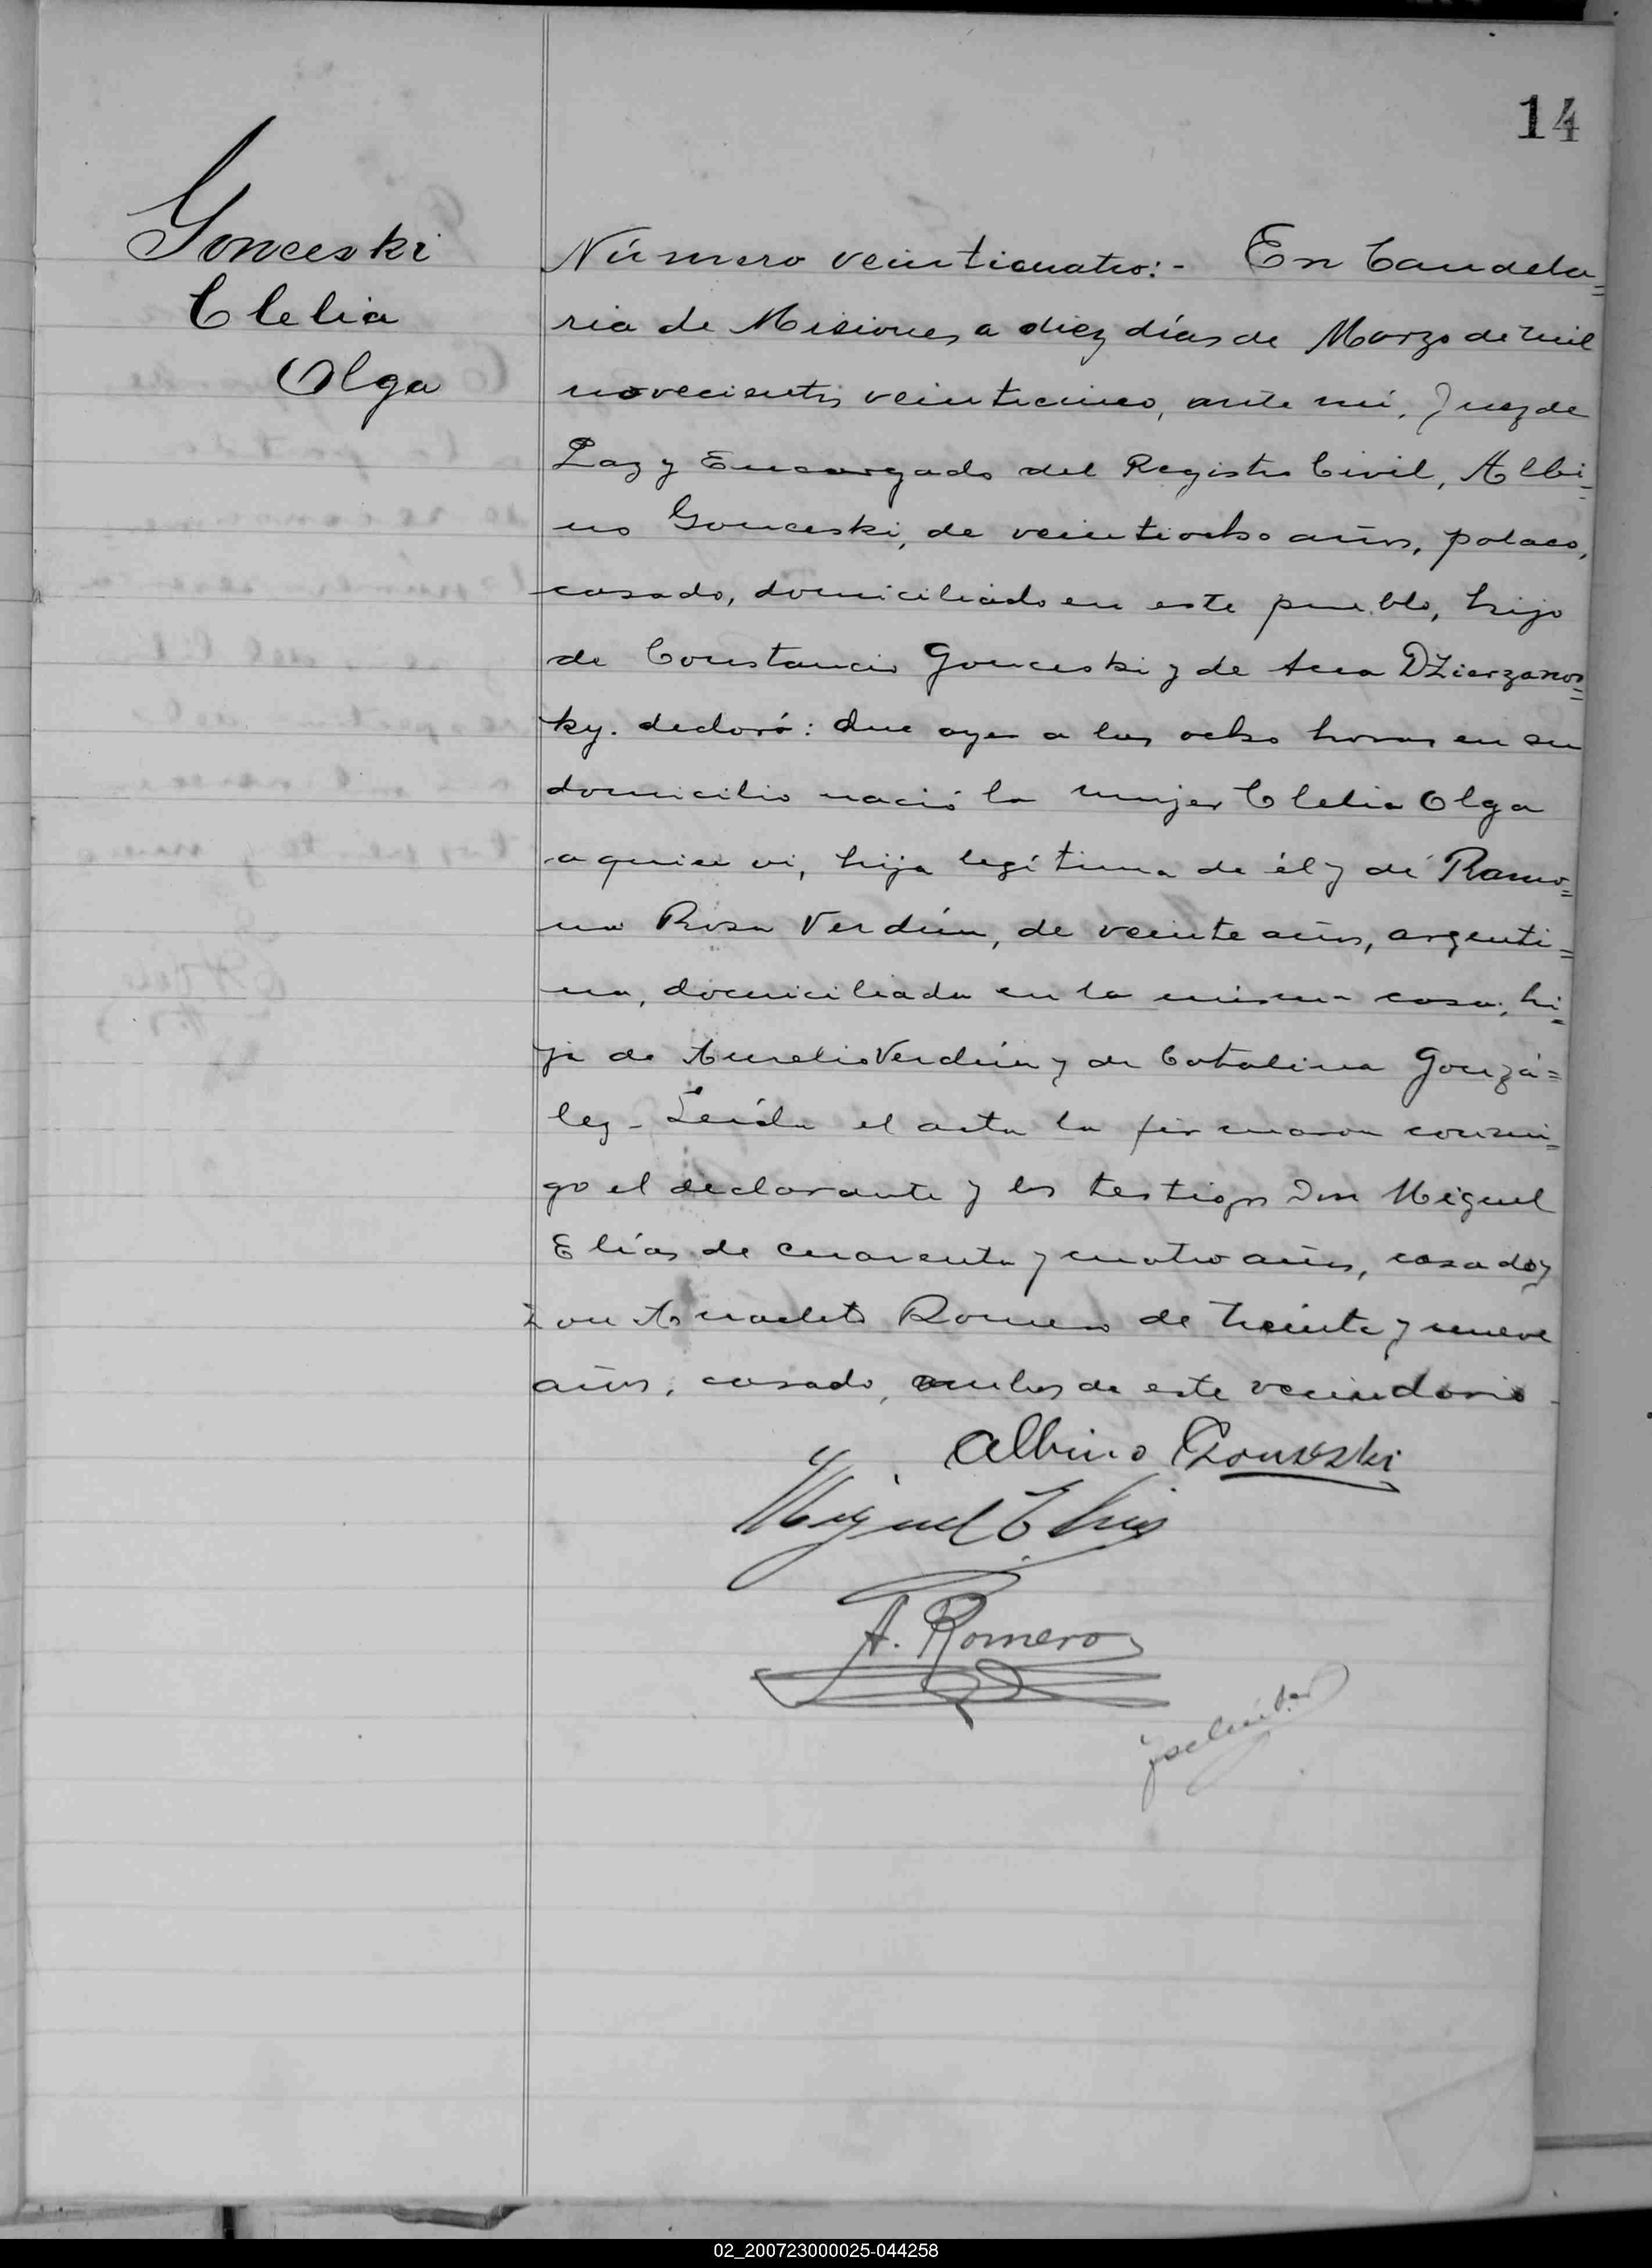 14
Gonceski
Clelia
Olga
Número veinticuatro:- En Candela=
ria de Misiones a diez días de Marzo de mil
novecientos veinticinco, ante mí, Juez de
Paz y Encargado del Registro Civil, Albi=
no Gonceski, de veintiocho años, polaco,
casado, domiciliado en este pueblo, hijo
de Constancio Gonceski y de Ana DZierzanos=
ky. declaró: Que ayer a las ocho horas en su
domicilio nació la mujer Clelia Olga
a quien vi, hija legítima de él y de Ramo=
na Rosa Verdún, de veinte años, argenti=
na, domiciliada en la misma casa, hi=
ja de Aurelio Verdún y de Catalina Gonzá=
lez - Leída el acta la firmaron conmi=
go el declarante y los testigos Don Miguel
Elías de cuarenta y cuatro años, casado y
Don Anacleto Romero de treinta y nueve
años, casado, ambos de este vecindario -
Albino Gonzeski
Miguel Elias
A. Romero
02_200723000025-044258